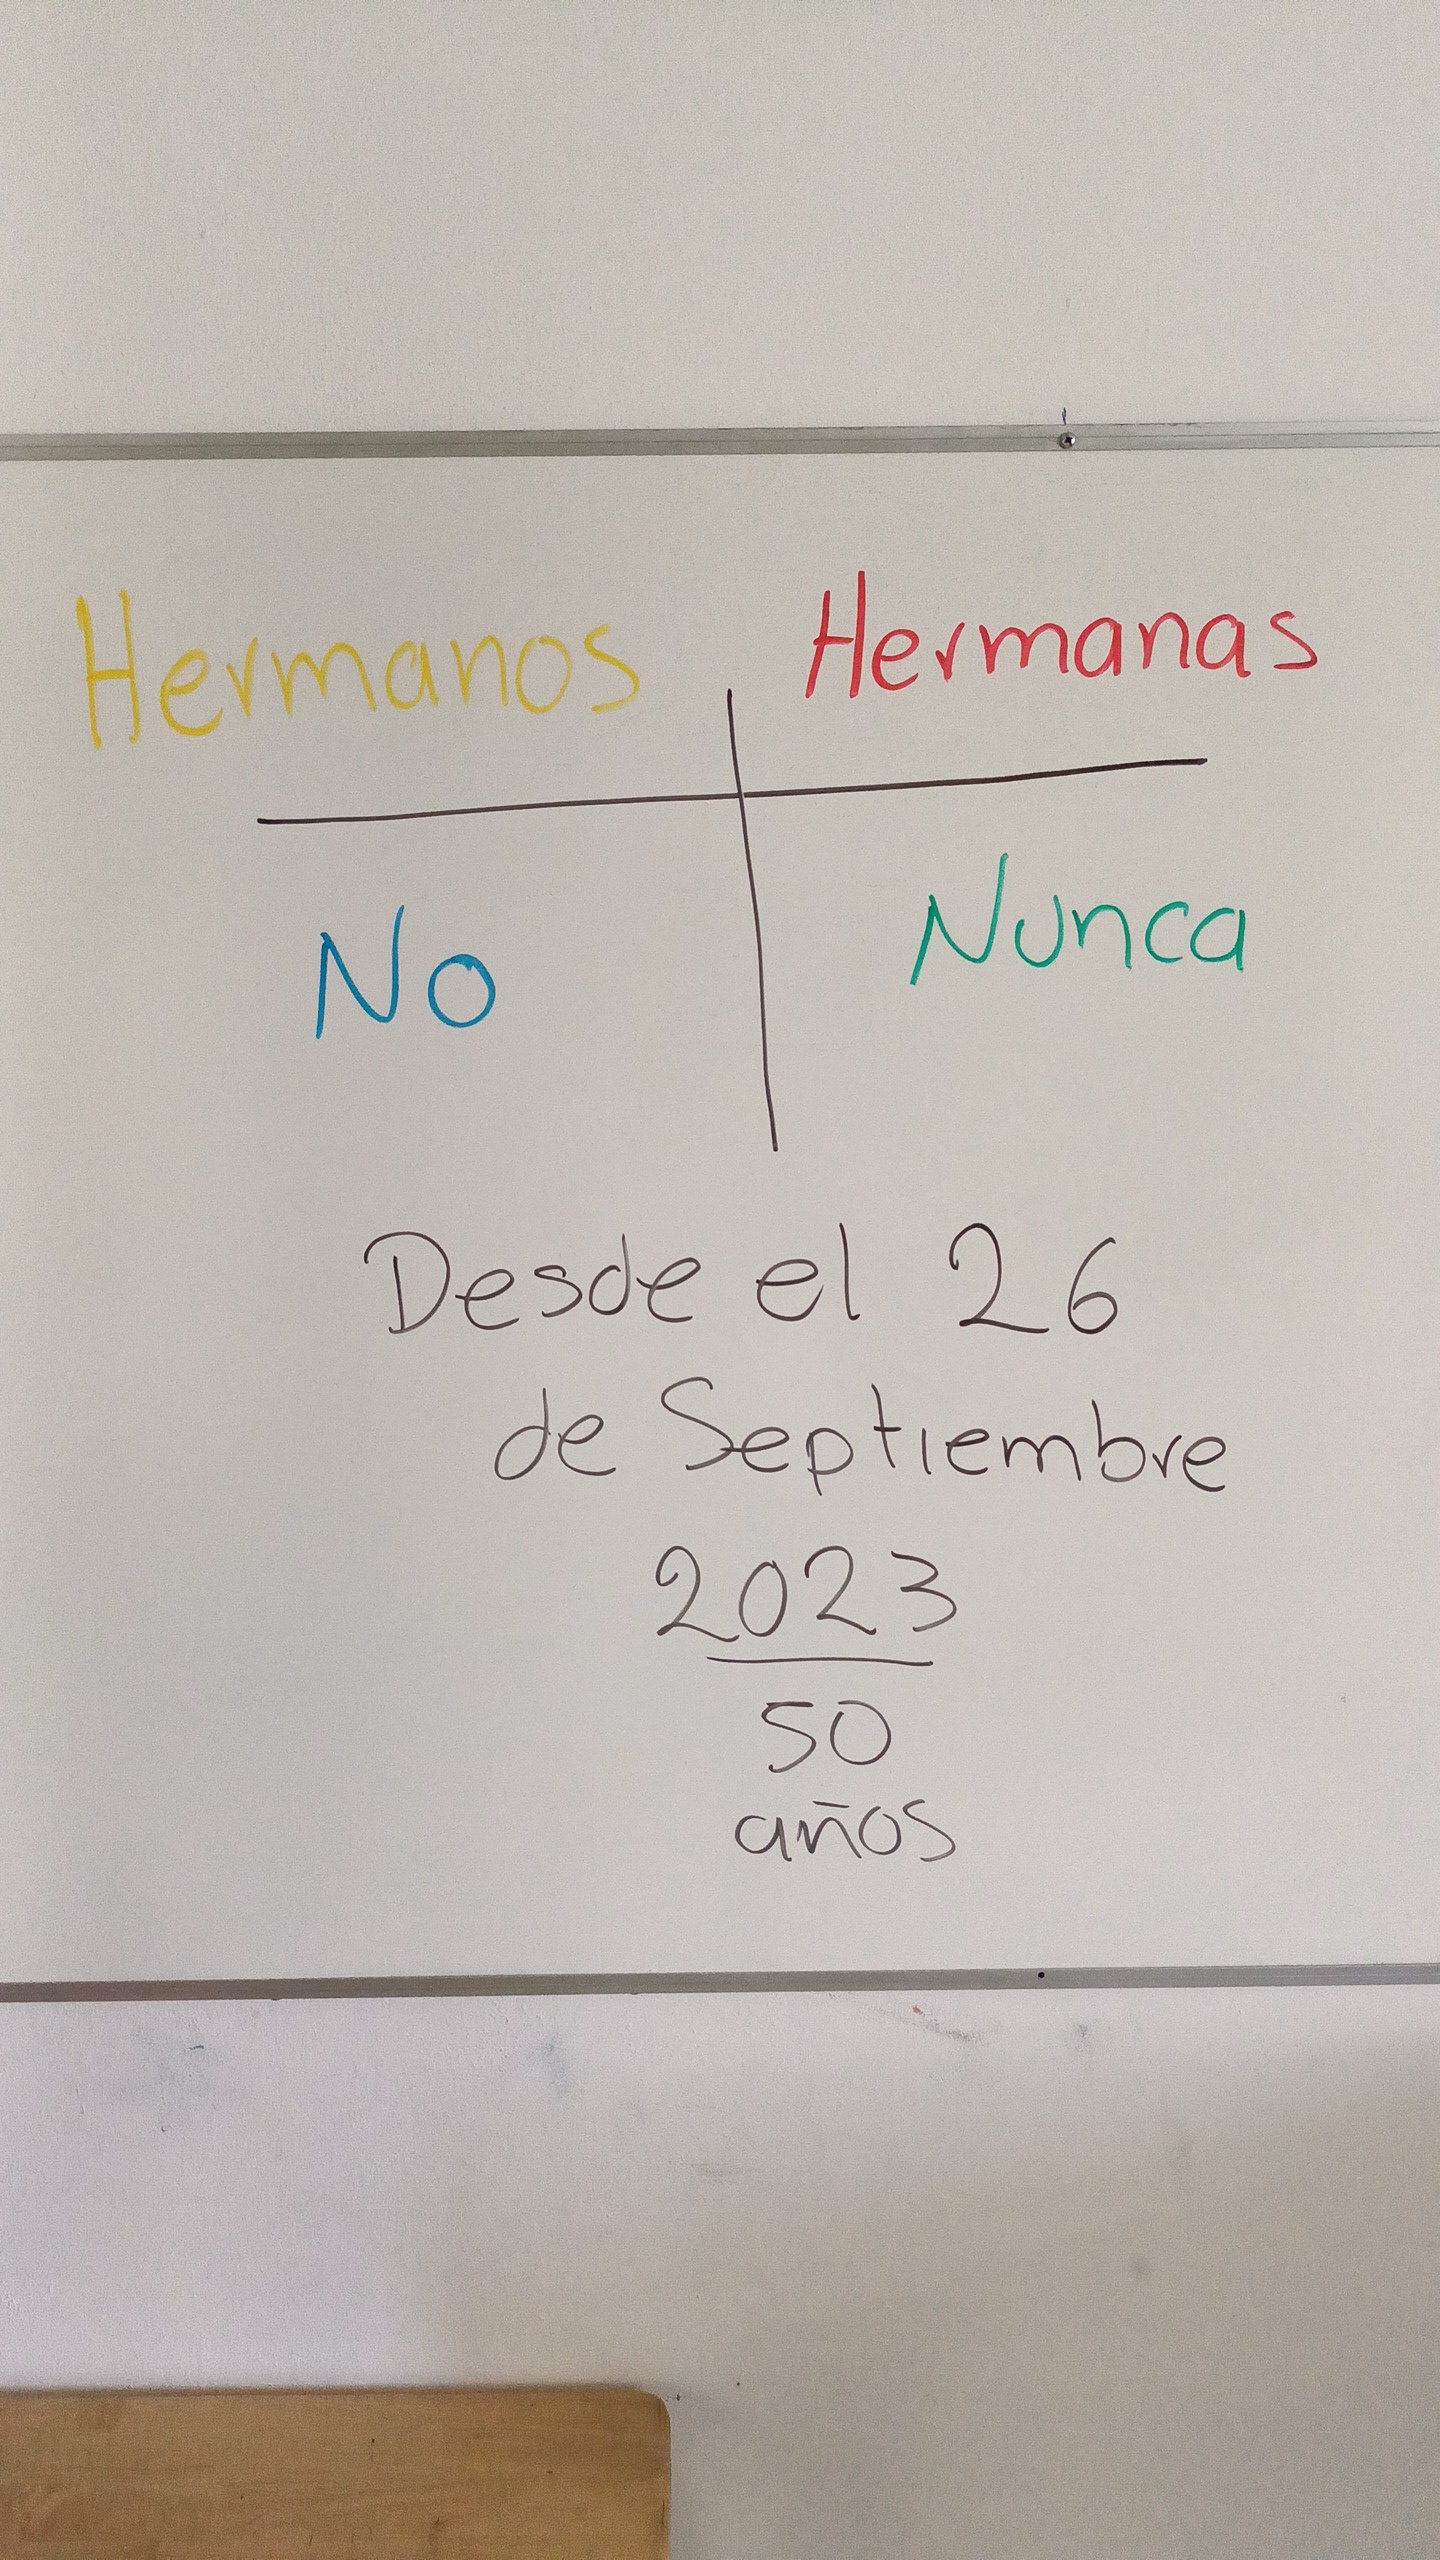 Hermanos Hermanas
No Nunca
Desde el 26
de Septiembre
2023
50
años